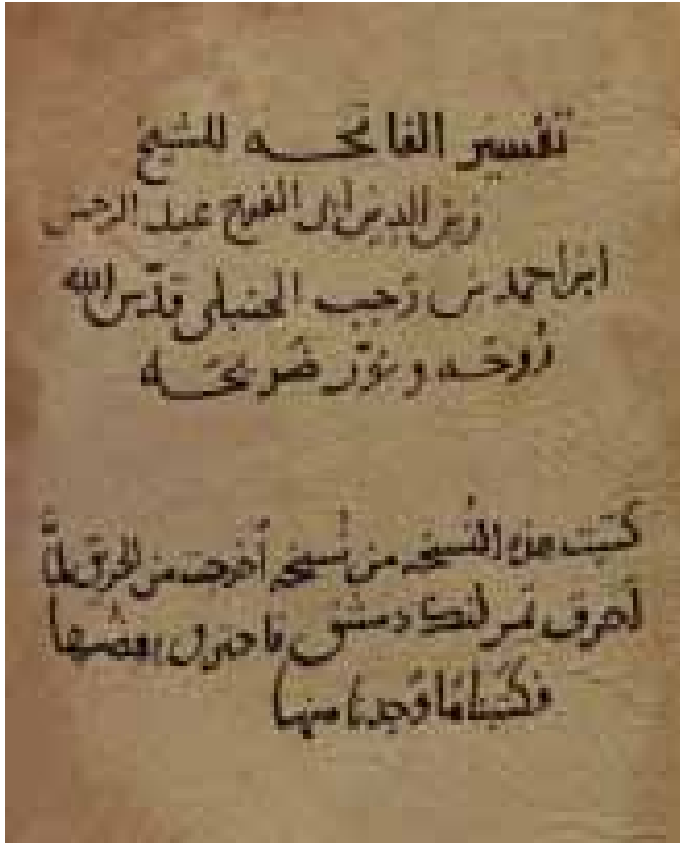 تفسير الفاتحه للشيخ
زين الدين ابى الفرج عبد الرحمن
ابن احمد بن رَجب الحنبلى قدّس الله
رُوحَه ونوّر ضَريحَه
كُتبت هذه النُسخه من نُسخه أُخرجت من الحريق لمَّا
أحرق تمرلنك دمشق فاحترق بعضها
فكتبنا مَا وَجدنا منها